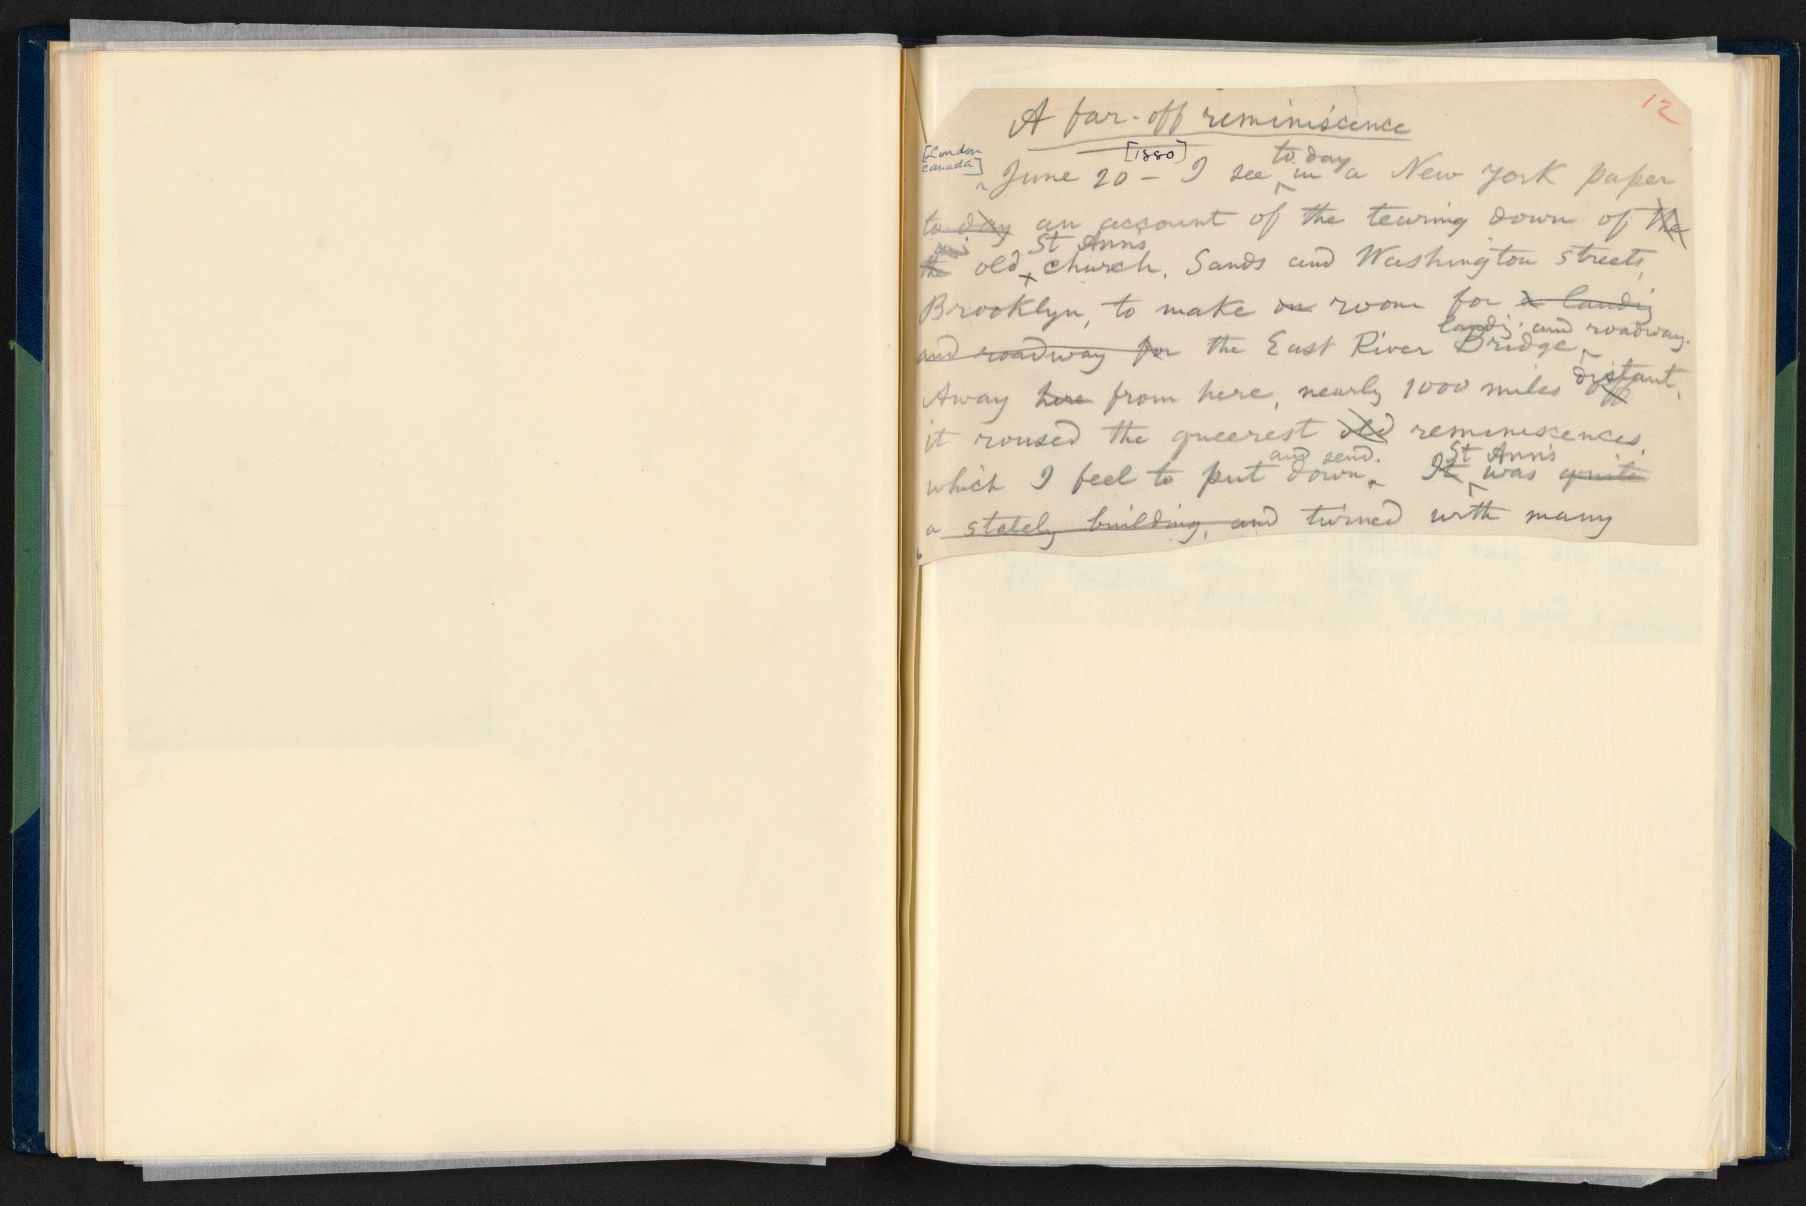 12
A far-off reminiscence
[London
Canada]
[1880]
to day
June 20 – I see in a New York paper
to day an account of the tearing down of the
St Ann's
the old church, Sands and Washington streets,
Brooklyn, to make on room for a landi'g
landi'g and roadway.
and roadway for the East River Bridge
Away here from here, nearly 1000 miles off distant,
it roused the queerest old reminiscences,
and send.
St Ann's
which I feel to put down It was quite
a stately building, and twined with many